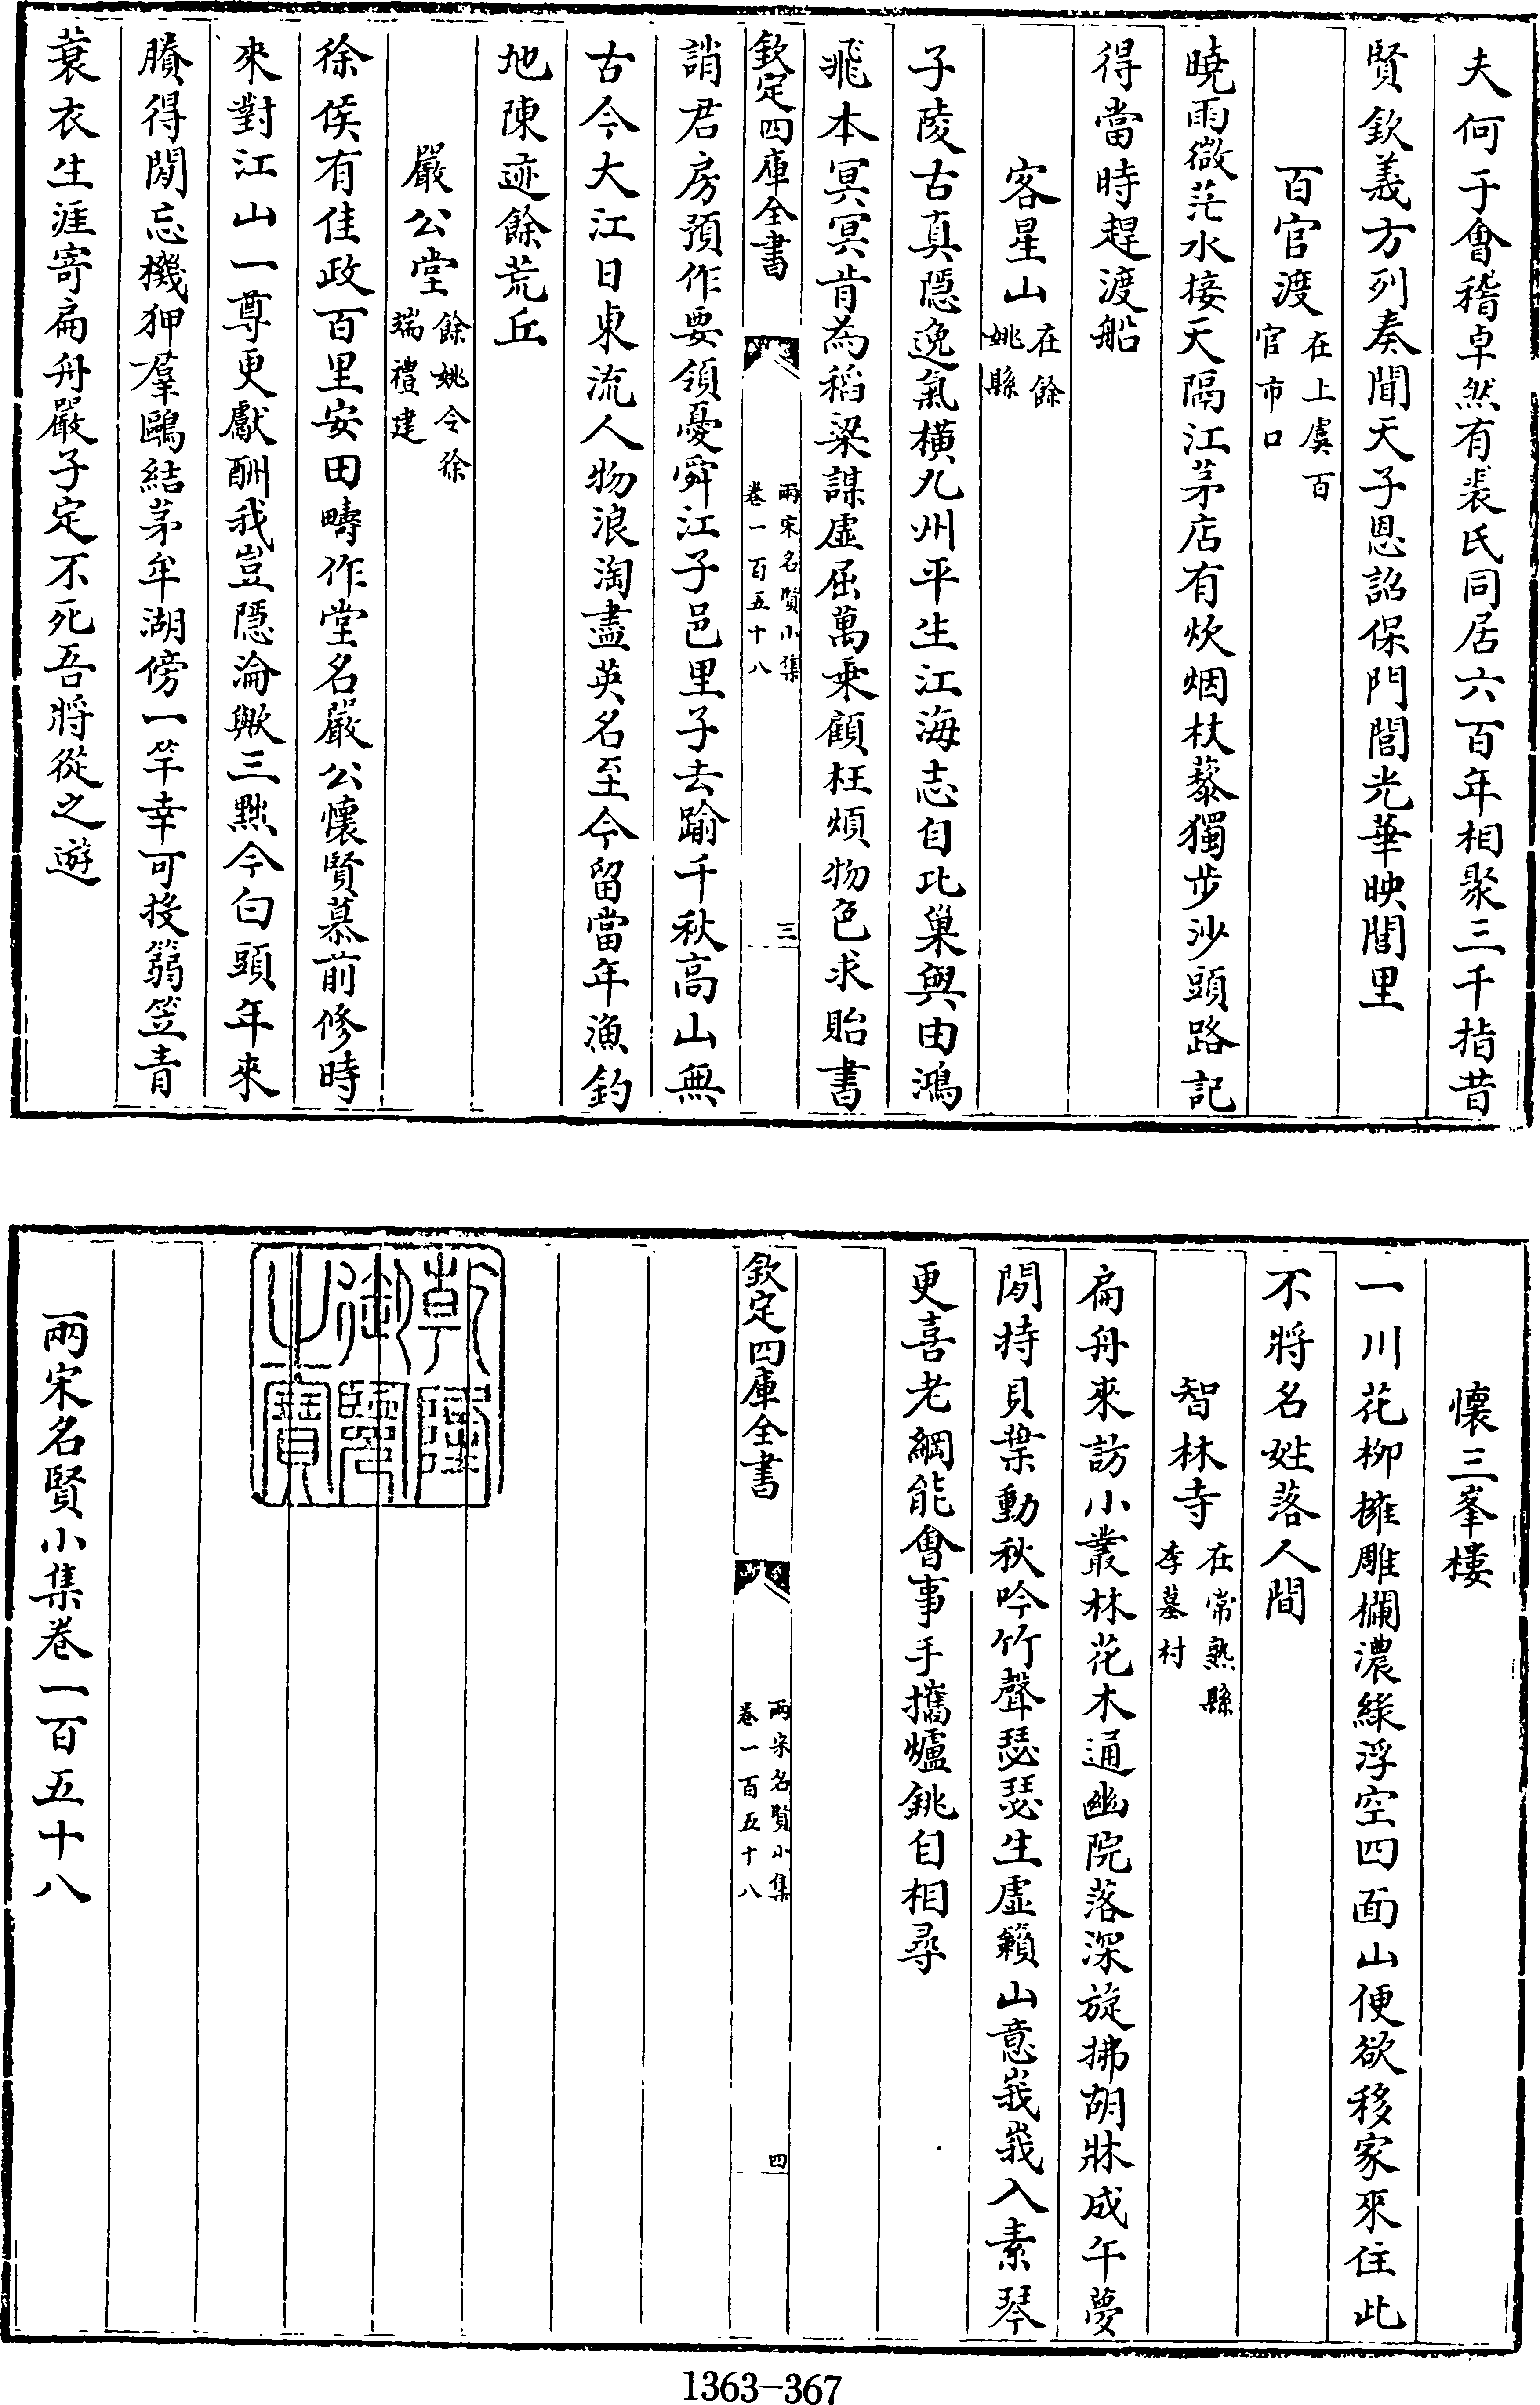 夫何于會稽卓然有裴氏同居六百年相聚三千指昔
賢欽義方列奏聞天子恩詔保門閭光華映閭里
百官渡
在上虞百
官市口
曉雨微茫水接天隔江茅店有炊烟杖藜獨步沙頭路記
得當時趕渡船
客星山
在餘
姚縣
子陵古真隱逸氣橫九州平生江海志自比巢與由鴻
飛本冥冥肯為稻粱謀虛屈萬乗顧枉煩物色求貽書
欽定四庫全書
兩宋名賢小集
卷一百五十八
三
誚君房預作要領憂舜江子邑里子去踰千秋高山無
古今大江日東流人物浪淘盡英名至今留當年漁釣
地陳迹餘荒丘
嚴公堂
餘姚令徐
端禮建
徐侯有佳政百里安田疇作堂名嚴公懷賢慕前修時
來對江山一尊更獻酬我豈隱淪歟三黜今白頭年來
賸得閒忘機狎羣鷗結茅牟湖傍一竿幸可投篛笠青
蓑衣生涯寄扁舟嚴子定不死吾將從之遊
懷三峯樓
一川花柳擁雕欄濃綠浮空四面山便欲移家來住此
不將名姓落人間
智林寺
在常熟縣
李墓村
扁舟來訪小叢林花木通幽院落深旋拂胡牀成午夢
閒持貝葉動秋吟竹聲瑟瑟生虛籟山意峩峩入素琴
更喜老綱能會事手攜爐銚自相尋
欽定四庫全書
兩宋名賢小集
卷一百五十八
四
乾隆
御覽
之寶
兩宋名賢小集卷一百五十八
1363-367